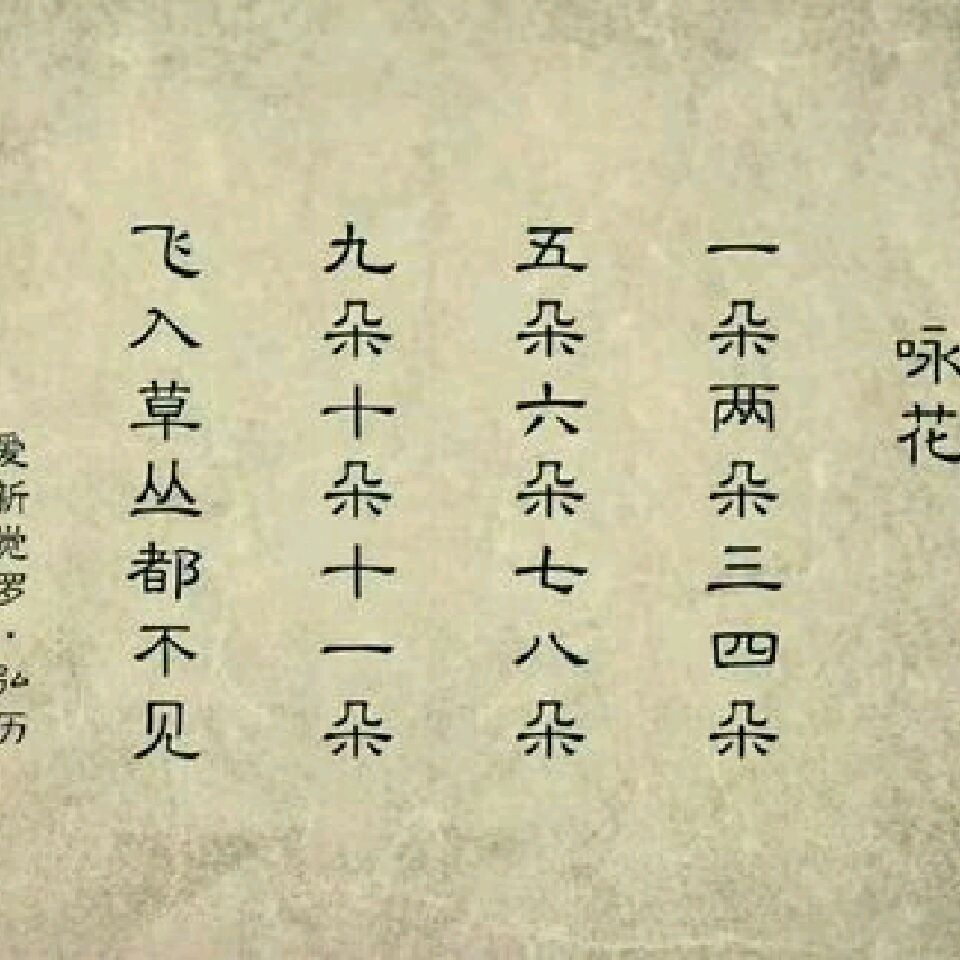 咏花
一朵两朵三四朵
五朵六朵七八朵
九朵十朵十一朵
飞入草丛都不见
爱新觉罗·弘历